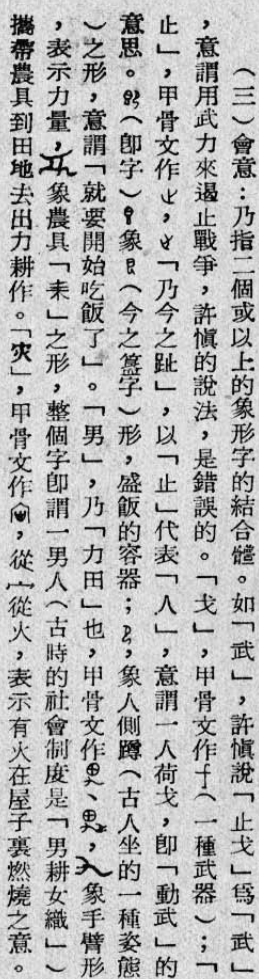 （三）會意：乃指二個或以上的象形字的結合體。如「武」，許愼說「止戈」爲「武」
，意謂用武力來遏止戰爭，許愼的說法，是錯誤的。「戈」，甲骨文作（一種武器）；「
止」，甲骨文作，「乃今之趾」，以「止」代表「人」，意謂一人荷戈，卽「動武」的
意思。（卽字）象（今之簋字）形，盛飯的容器；，象人側蹲（古人坐的一種姿態
）之形，意謂「就要開始吃飯了」。「男」，乃「力田」也，甲骨文作、，象手臂形
，表示力量，象農具「耒」之形，整個字卽謂一男人（古時的社會制度是「男耕女織」）
攜帶農具到田地去出力耕作。「灾」，甲骨文作，從宀從火，表示有火在屋子裏燃燒之意。